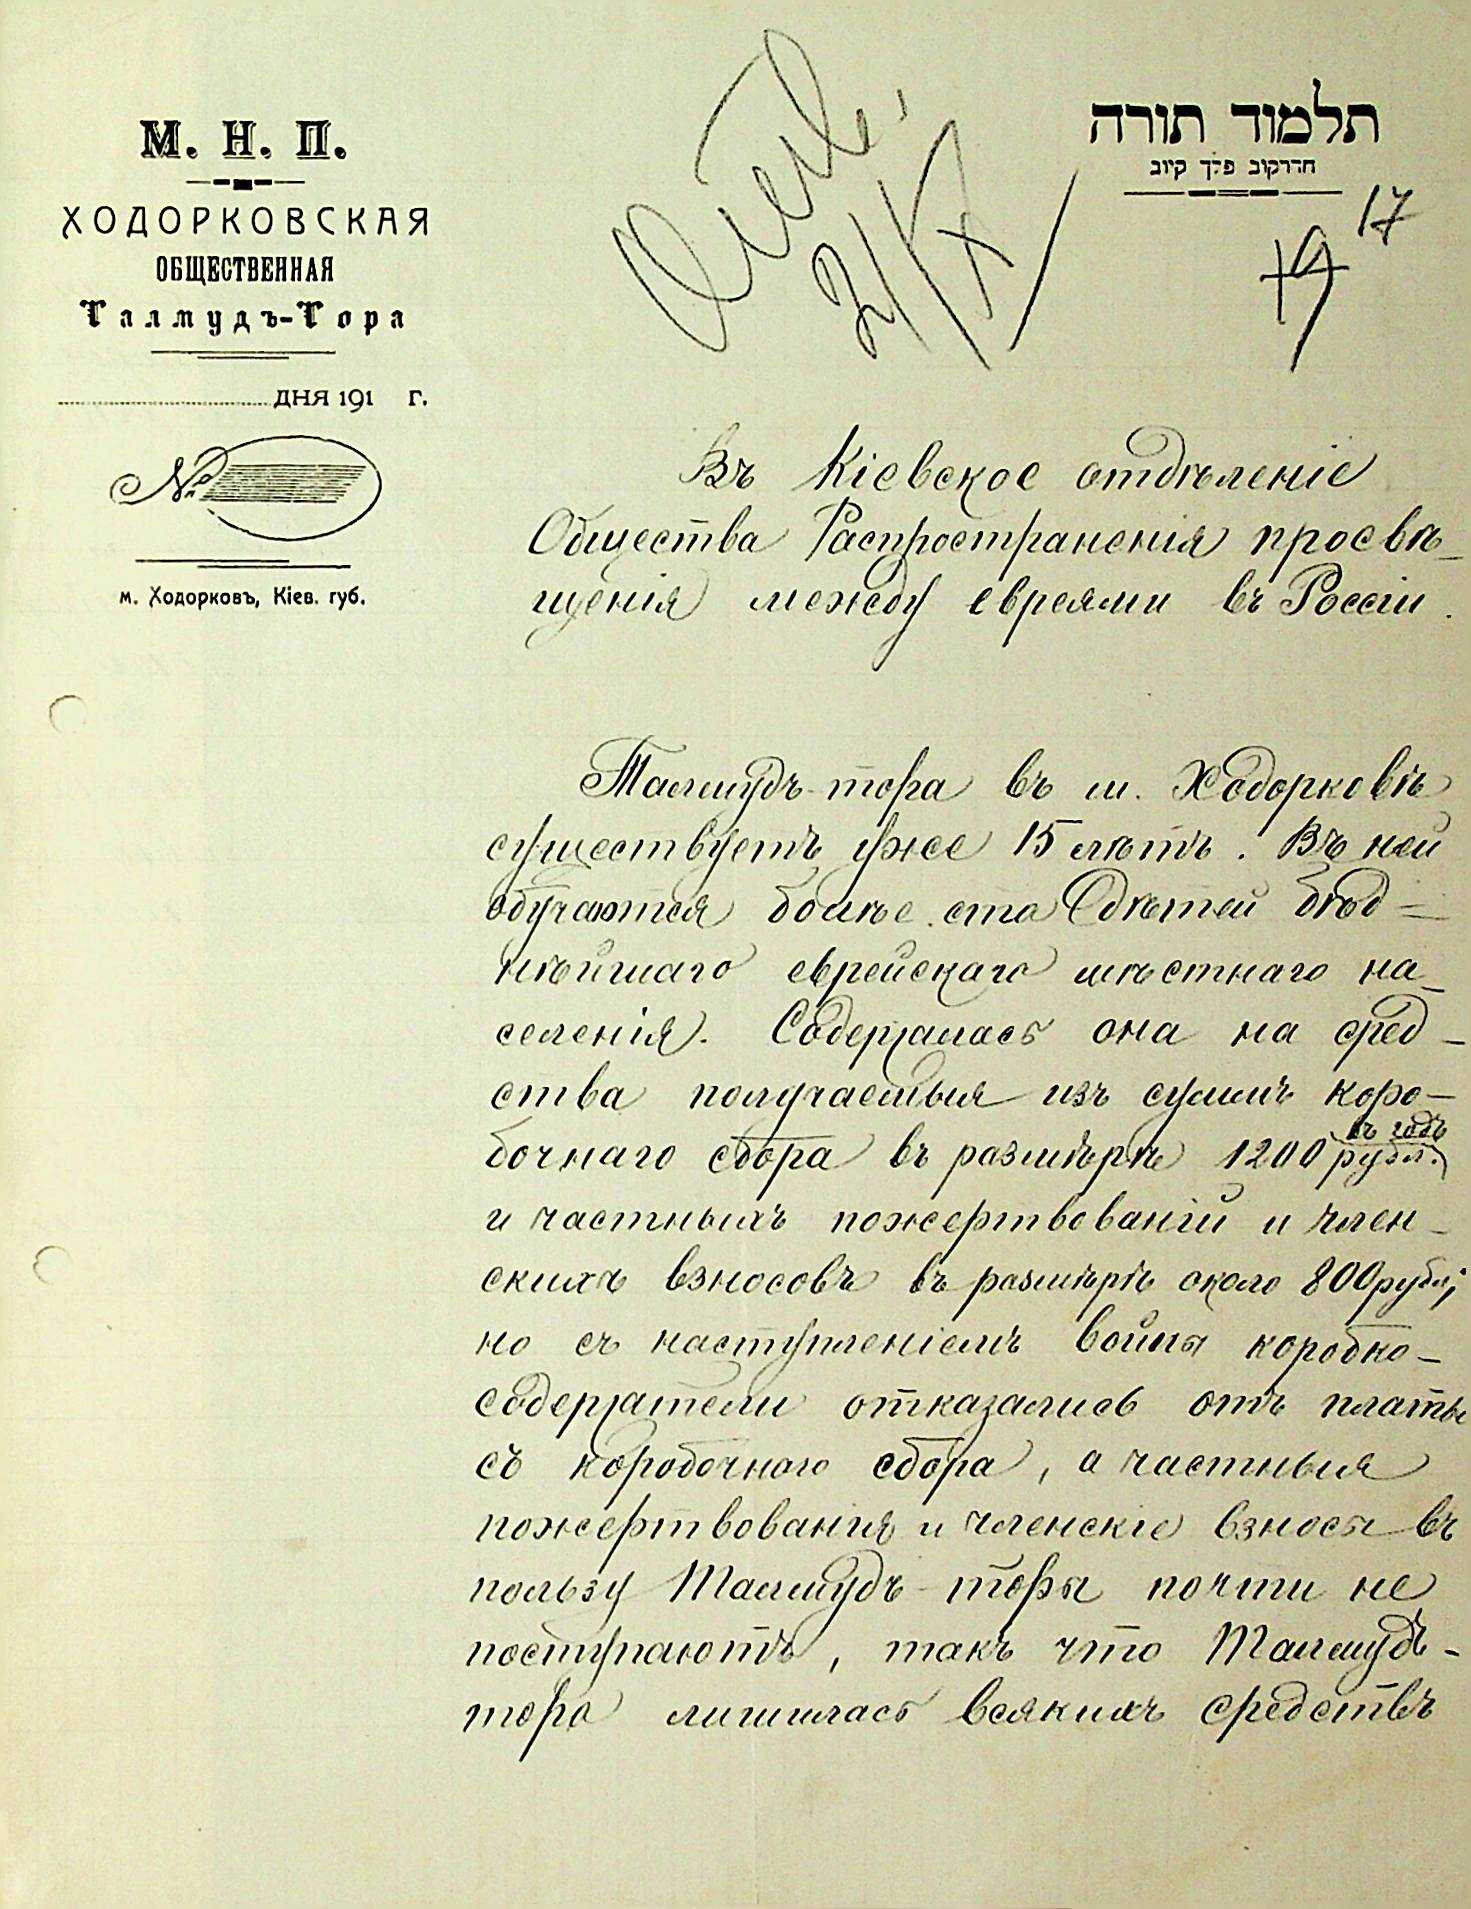 М. Н. П.
ХОДОРКОВСКАЯ
ОБЩЕСТВЕННАЯ
Талмудъ-Тора
дня 191 г.
№
м. Ходорковъ, Кіев. губ.
תלמוד תורה
חדרקוב פלך קיוב
17
19
Въ Кіевское отдѣленіе
Общества Распространенія просвѣ-
щенія между евреями въ Россіи.
Талмудъ-тора въ м. Ходорковѣ
существуетъ уже 15 лѣтъ. Въ ней
обучаются болѣе ста дѣтей бѣд=
нѣйшаго еврейскаго мѣстнаго на-
селенія. Содержалась она на сред-
ства получаемыя изъ суммъ коро-
бочнаго сбора въ размѣрѣ 1200 рубл. въ годъ
и частныхъ пожертвованій и член-
скихъ взносовъ въ размѣрѣ около 800 рубл;
но съ наступленіемъ войны коробко-
содержатели отказались отъ платы
съ коробочного сбора, а частныя
пожертвованія и членскіе взносы въ
пользу Талмудъ-торы почти не
поступаютъ, такъ что Талмудъ-
тора лишилась всякихъ средствъ